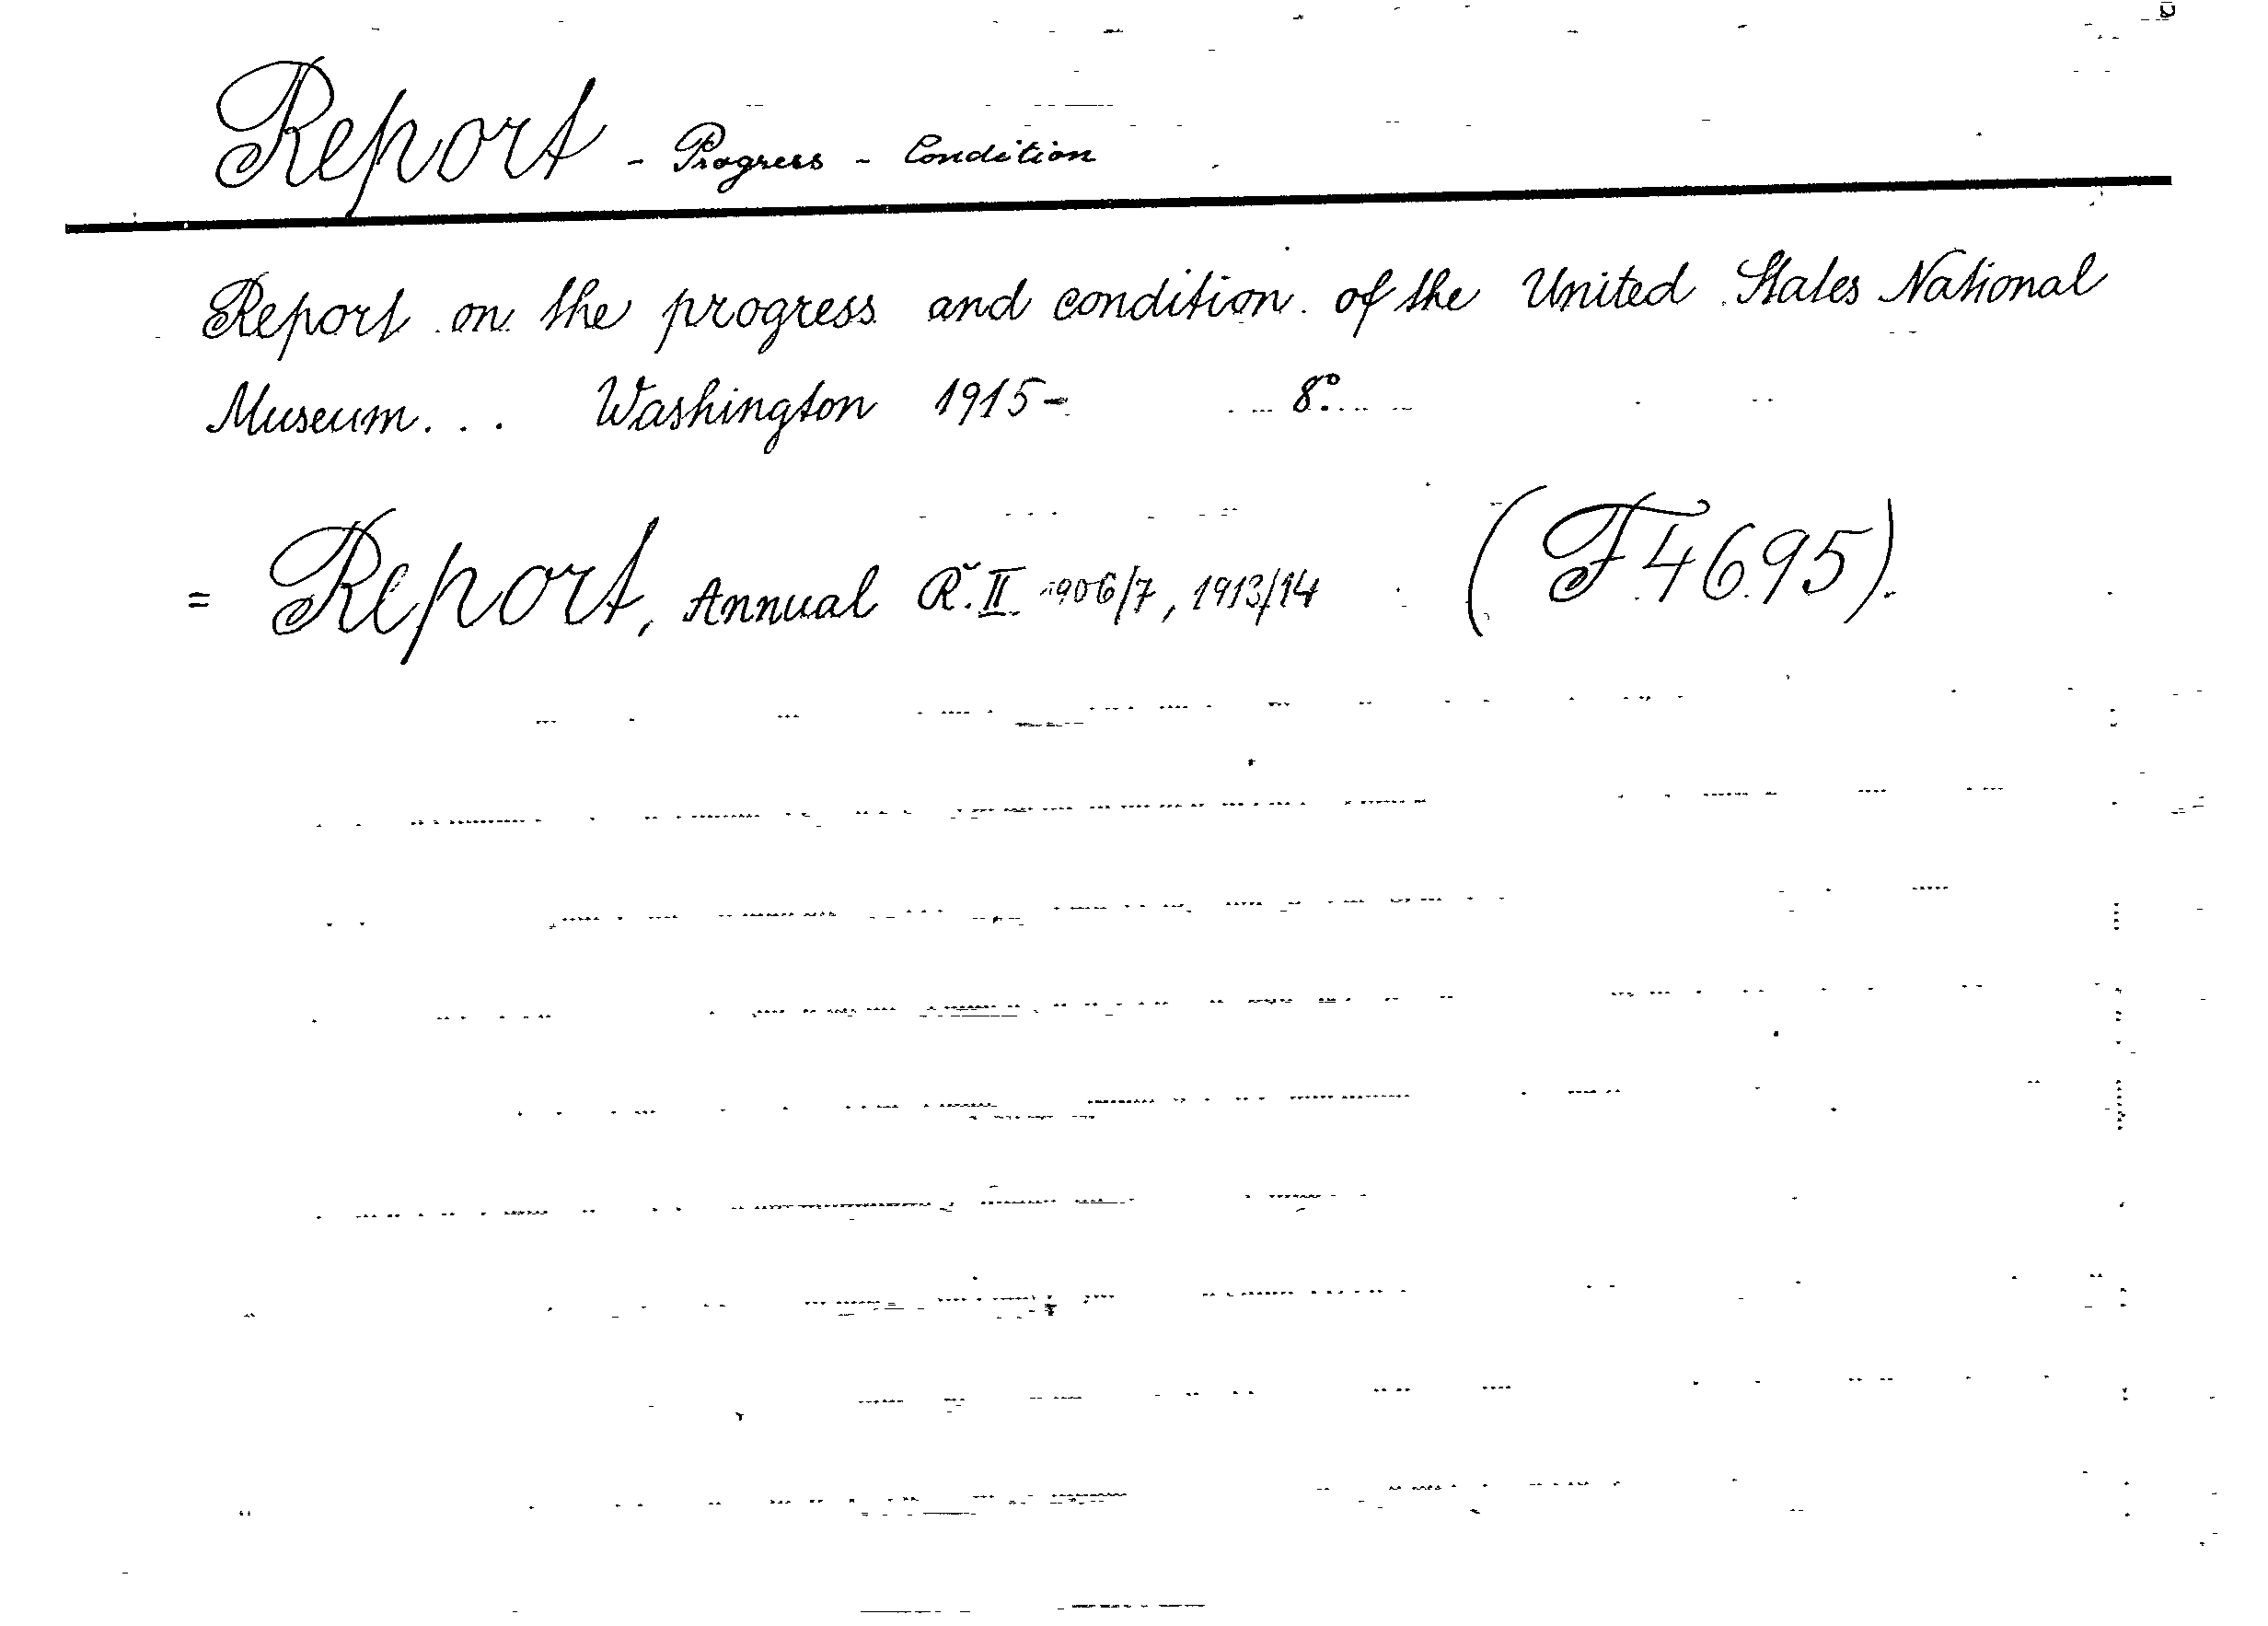 Report - Progress - Condition
Report on the progress and condition of the United States National
Museum... Washington 1915- 8º
= Report, Annual R. II 1906/7, 1913/14 (F 4695).